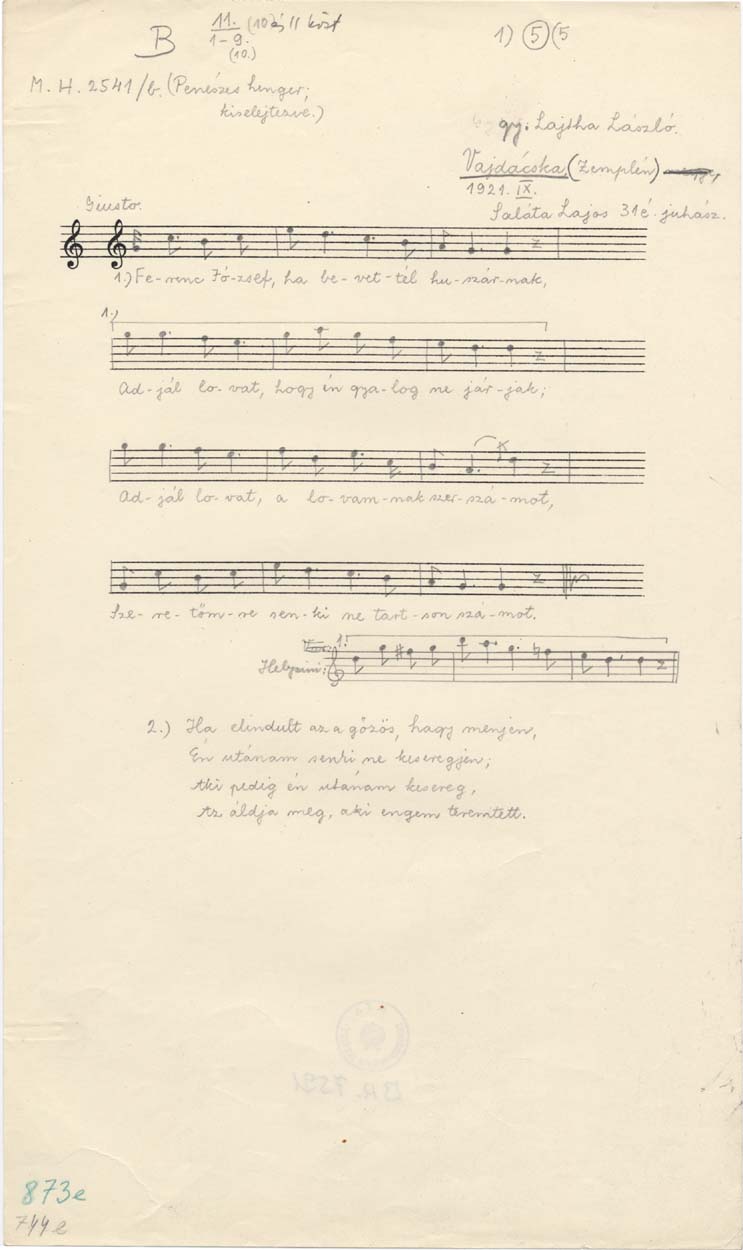 B
11. (10 és 11 közt
1-9.
(10.)
1) 5 (5
M. H. 2541/b. (Penészes henger;
kiselejtezve.)
gy: Lajtha László.
Vajdácska, (Zemplén)
1921. IX.
Saláta Lajos 31 é. juhász.
Giusto.
1.) Fe-renc Jó-zsef, ha be-vet-tél hu-szár-nak,
1.,
Ad-jál lo-vat, hogy én gya-log ne jár-jak;
Ad-jál lo-vat, a lo-vam-nak szer-szá-mot,
Sze-re-tőm-re sen-ki ne tart-son szá-mot.
1.
Helyszini:
2.) Ha elindult az a gőzös, hagy menjen,
Én utánam senki ne keseregjen;
Aki pedig én utánam kesereg,
Az áldja meg, aki engem teremtett.
BR. 7591
873e
744e